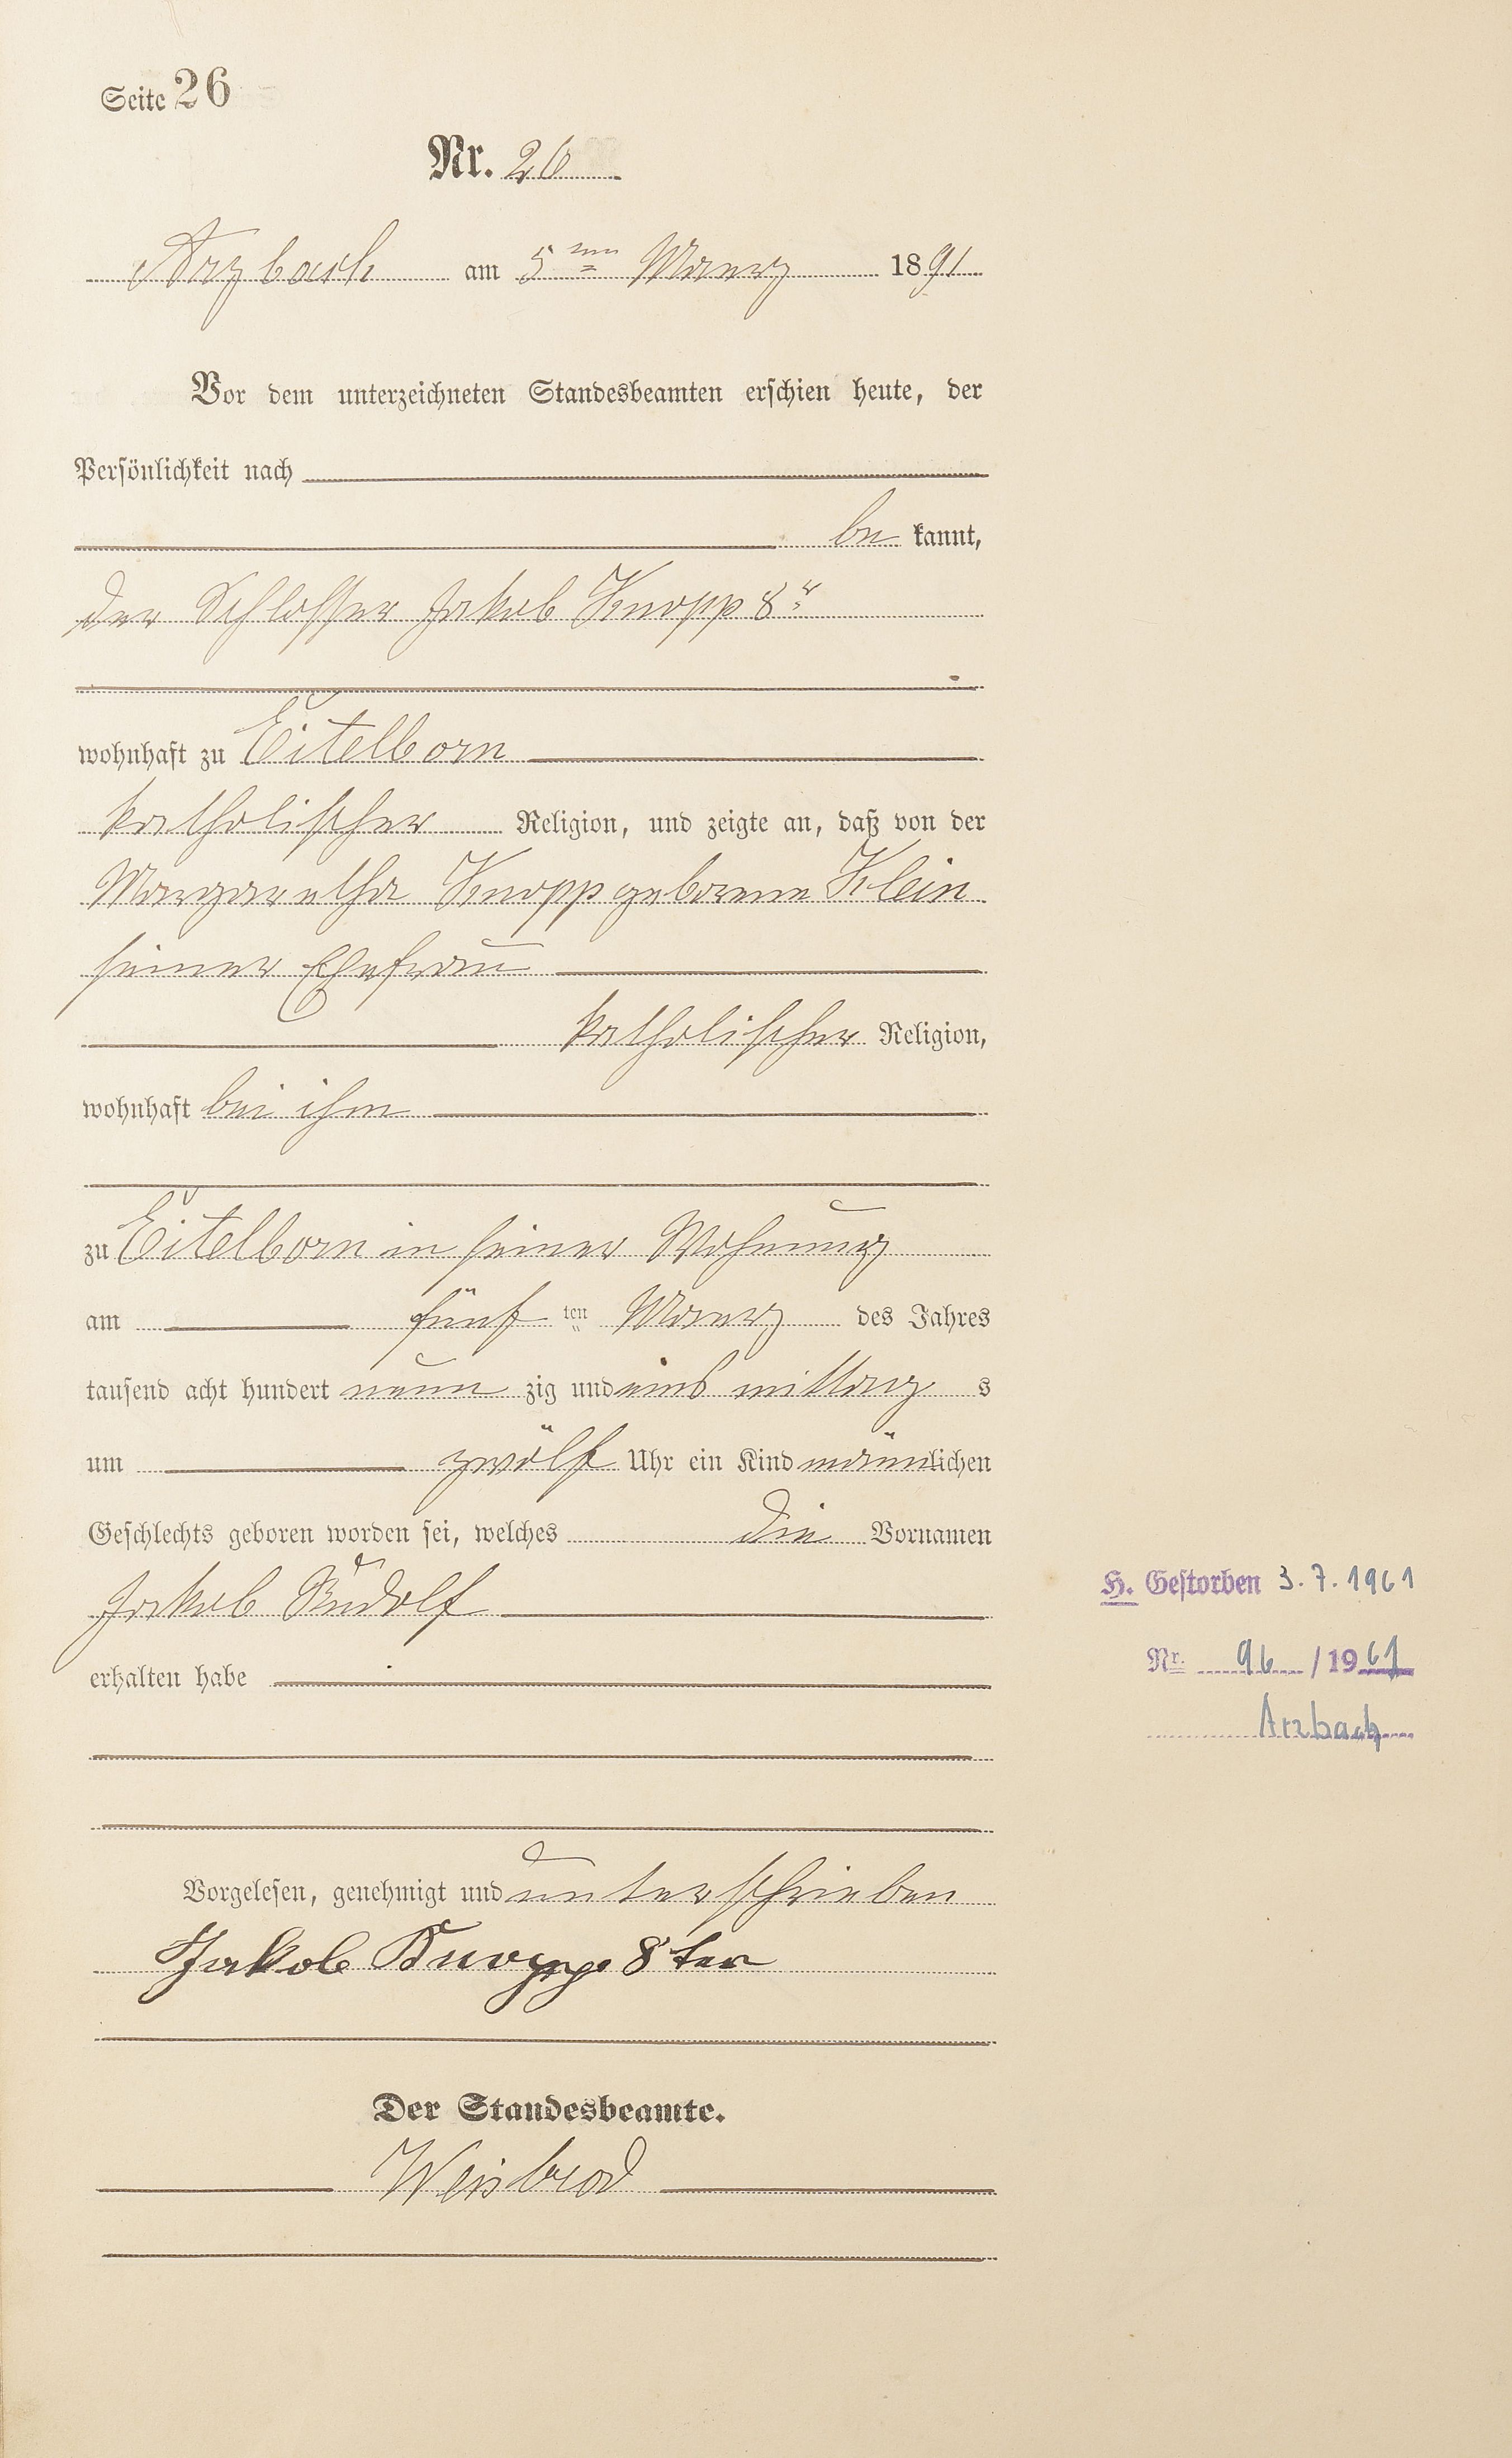 Seite 26
Nr. 26
Arzbach am 5ten Maerz 1891
Vor dem unterzeichneten Standesbeamten erschien heute, der
Persönlichkeit nach
be kannt,
der Schlosser Jakob Knopp 8r
wohnhaft zu Eitelborn
katholischer Religion, und zeigte an, daß von der
Margaretha Knopp geborene Klein
seiner Ehefrau
katholischer Religion,
wohnhaft bei ihm
zu Eitelborn in seiner Wohnung
am fünf ten Maerz des Jahres
tausend acht hundert neun zig und eins mittag s
um zwölf Uhr ein Kind männlichen
Geschlechts geboren worden sei, welches die Vornamen
Jakob Rudolf
H. Gestorben 3.7.1961
Nr. 96 / 1961
Arzbach
erhalten habe
Vorgelesen, genehmigt und unterschrieben
Jakob Knopp 8ter
Der Standesbeamte.
Weisbrod